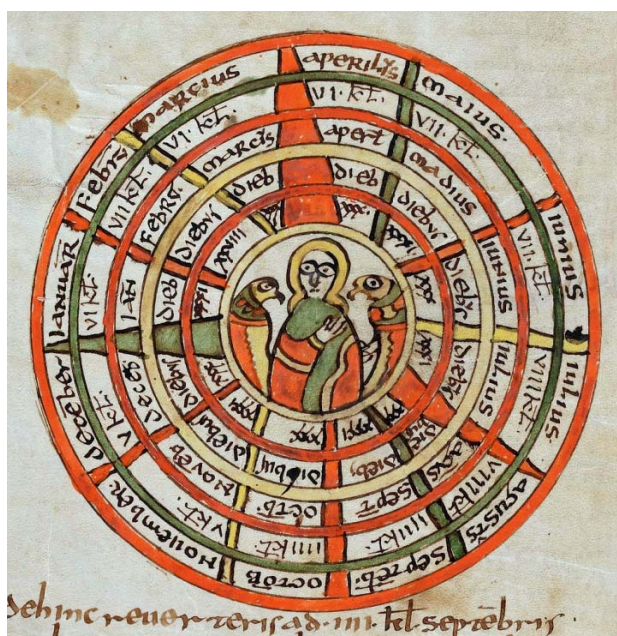 aperilis
maius
iunius
iulius
agusts
septēb
octōb
nouember
deceber
ianuar̄
febrs
marcius
vi kł
vii kł
vii kł
viii kł
viii kł
iiii kł
iiii kł
v kł
v kł
vi kł
vii kł
vi kł
aperł
madius
iunius
iulius
agus
sept
octb
nouēb
deceb
ian̄
febrs
marcis
dieb
diebus
diebs
diebs
dieb
diebus
diebus
diebus
dieb
diebus
dieb
xxx
xxxi
xxx
xxxi
xxx
xxxi
xxx
xxxi
dehinc reuerteris ad · iiii · kł · septēbris ·